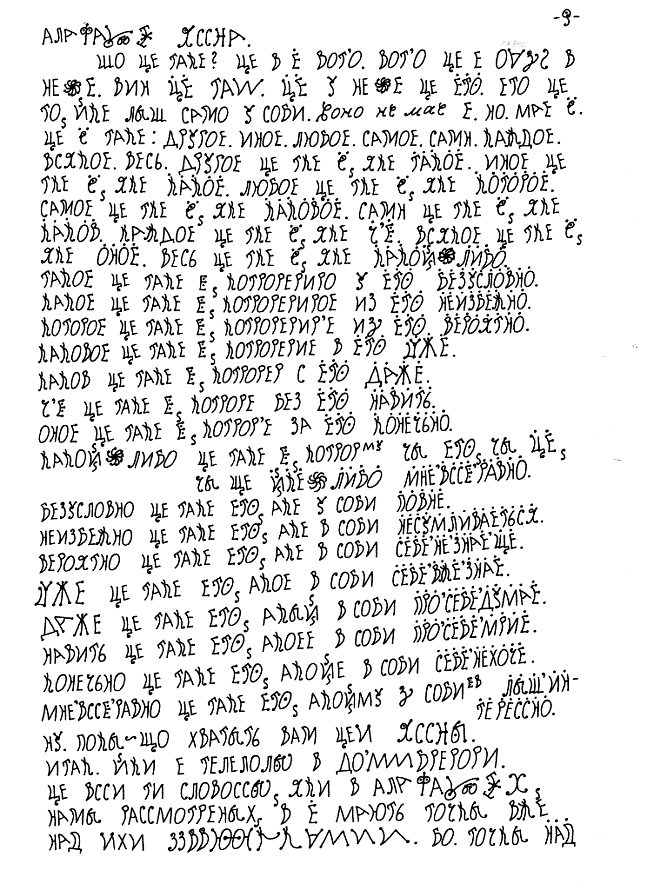 -9-
АЛА ЯССНА.
ШО ЦЕ ТАКЕ? ЦЕ В Ё ВОТ'О. ВОТ'О ЦЕ Е В
ВИН ЦЕ У ЦЕ ЕТО. ЕТО ЦЕ
ТО, ЙКЕ ЛЫШ САМО У СОБИ. воно не мае Е. НО. МАЕ Ё.
ЦЕ Ё ТАКЕ: ДРУГОЕ. ИНОЕ. ЛЮБОЕ. САМОЕ. САМИ. КАЖДОЕ.
ВСЯКОЕ. ВЕСЬ. ДРУГОЕ ЦЕ ТКЕ Ё, ЯКЕ ТАКОЕ. ИНОЕ ЦЕ
ТКЕ Ё, ЯКЕ КАКОЕ. ЛЮБОЕ ЦЕ ТКЕ Ё, ЯКЕ КОТОРОЕ.
САМОЕ ЦЕ ТКЕ Ё, ЯКЕ КАКОВОЕ. САМИ ЦЕ ТКЕ Ё, ЯКЕ
КАКОВ. КАЖДОЕ ЦЕ ТКЕ Ё, ЯКЕ Ч'Е. ВСЯКОЕ ЦЕ ТКЕ Ё,
ЯКЕ ОНОЕ. ВЕСЬ ЦЕ ТКЕ Ё, ЯКЕ КАКОЙ ЛИБО.
ТАКОЕ ЦЕ ТАКЕ Ё, КОТРОРЕРИРО У ЕТО БЕЗУСЛОВНО.
КАКОЕ ЦЕ ТАКЕ Ё, КОТРОРЕРИРОЕ ИЗ ЕТО НЕИЗБЕЖНО.
КОТОРОЕ ЦЕ ТАКЕ Ё, КОТРОРЕРИР'Е ИЗ ЕТО ВЕРОЯТНО.
КАКОВОЕ ЦЕ ТАКЕ Ё, КОТРОРЕРИЕ В ЕТО УЖЕ.
КАКОВ ЦЕ ТАКЕ Ё, КОТРОРЕР С ЕТО ДАЖЕ.
Ч'Е ЦЕ ТАКЕ Ё, КОТРОРЕ БЕЗ ЕТО НАВИТЬ.
ОНОЕ ЦЕ ТАКЕ Ё, КОТРОР'Е ЗА ЕТО КОНЕЧЬНО.
КАКОЙ ЛИБО ЦЕ ТАКЕ Ё, КОТРОРМУ ЧЫ ЕТО, ЧЫ ЦЕ,
ЧЫ ЩЕ ЛИБО МНЕ'ВССЕ'РАВНО.
БЕЗУСЛОВНО ЦЕ ТАКЕ ЕТО, АКЕ У СОБИ ПОВНЕ.
НЕИЗБЕЖНО ЦЕ ТАКЕ ЕТО, АКЕ В СОБИ НЕСУМЛИВАЕТЬСЯ.
ВЕРОЯТНО ЦЕ ТАКЕ ЕТО, АКЕ В СОБИ СЕБЕ'НЕ'ЗНАЕ'ЩЕ.
УЖЕ ЦЕ ТАКЕ ЕТО, АКОЕ В СОБИ СЕБЕ'ВЖЕ'ЗНАЕ.
ДАЖЕ ЦЕ ТАКЕ ЕТО, АКЫЙ В СОБИ ПРО'СЕБЕ'ДУМАЕ.
НАВИТЬ ЦЕ ТАКЕ ЕТО, АКОЕЕ В СОБИ ПРО'СЕБЕ'МРИЕ.
КОНЕЧЬНО ЦЕ ТАКЕ ЕТО, АКОЙЕ В СОБИ СЕБЕ'НЕХОЧЕ.
МНЕ'ВССЕ'РАВНО ЦЕ ТАКЕ ЕТО, АКОЙМУ У СОБИЕВ ЛЫШ'ИН-
ТЕРЕССНО.
НУ. ПОКЫ~ЩО ХВАТЫТЬ ВАМ ЦЕИ ЯССНЫ.
ИТАК. ЙКИ Е ТЕЛЕЛОЛЮ В
ЦЕ ВССИ ТИ СЛОВОССЫ, ЯКИ В
НАМЫ РАССМОТРЕНЫХ, В Ё МАЮТЬ ТОЧКЫ ВЖЕ
НАД ИХИ БО. ТОЧКЫ НАД